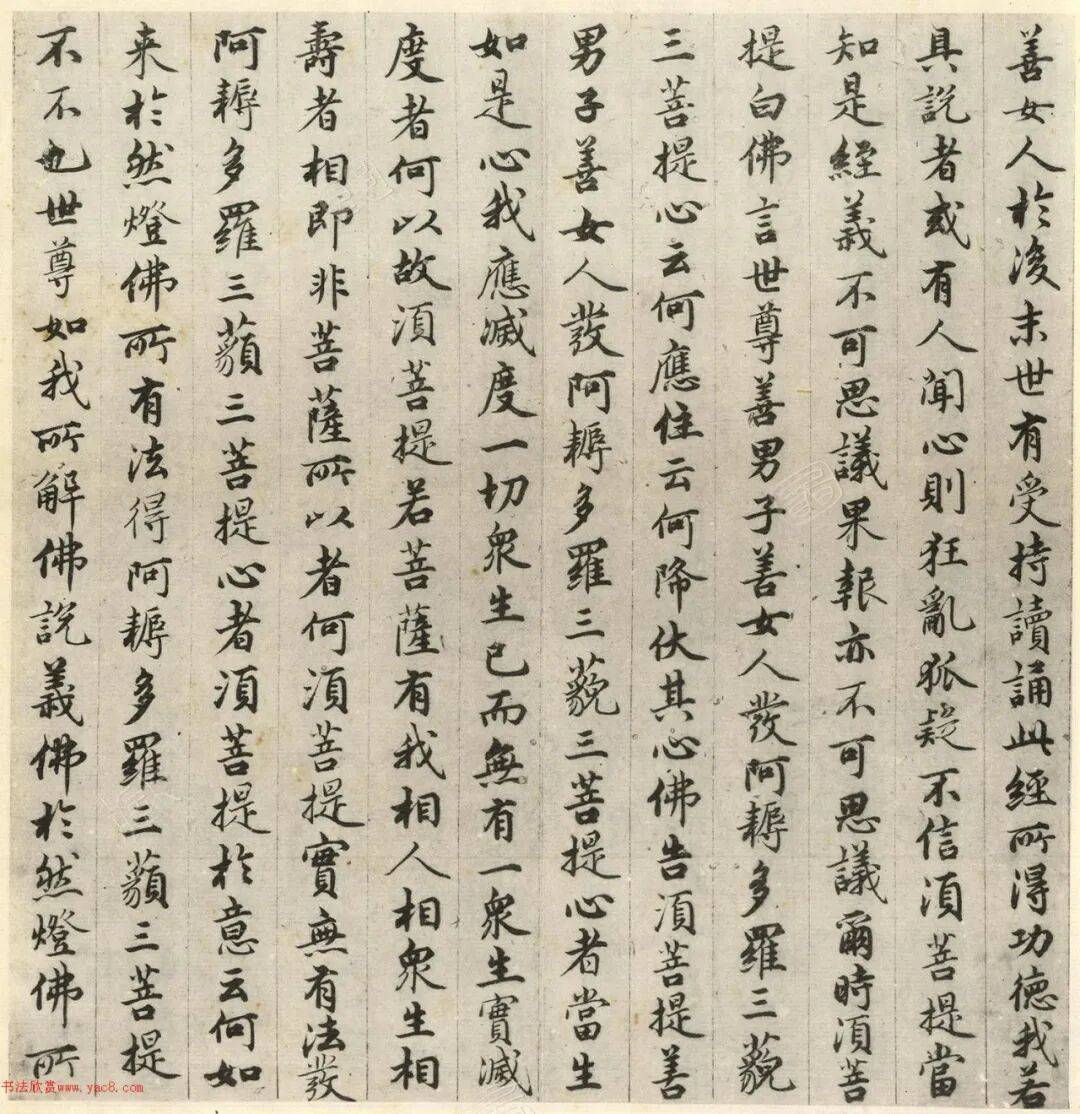 善女人於後末世有受持讀誦此經所得功德我若
具說者或有人聞心則狂亂狐疑不信須菩提當
知是經義不可思議果報亦不可思議爾時須菩
提白佛言世尊善男子善女人發阿耨多羅三藐
三菩提心云何應住云何降伏其心佛告須菩提善
男子善女人發阿耨多羅三藐三菩提心者當生
如是心我應滅度一切衆生已而無有一衆生實滅
度者何以故須菩提若菩薩有我相人相衆生相
壽者相即非菩薩所以者何須菩提實無有法發
阿耨多羅三藐三菩提心者須菩提於意云何如
来於然燈佛所有法得阿耨多羅三藐三菩提
不不也世尊如我所解佛說義佛於然燈佛所
书法欣赏www.yac8.com